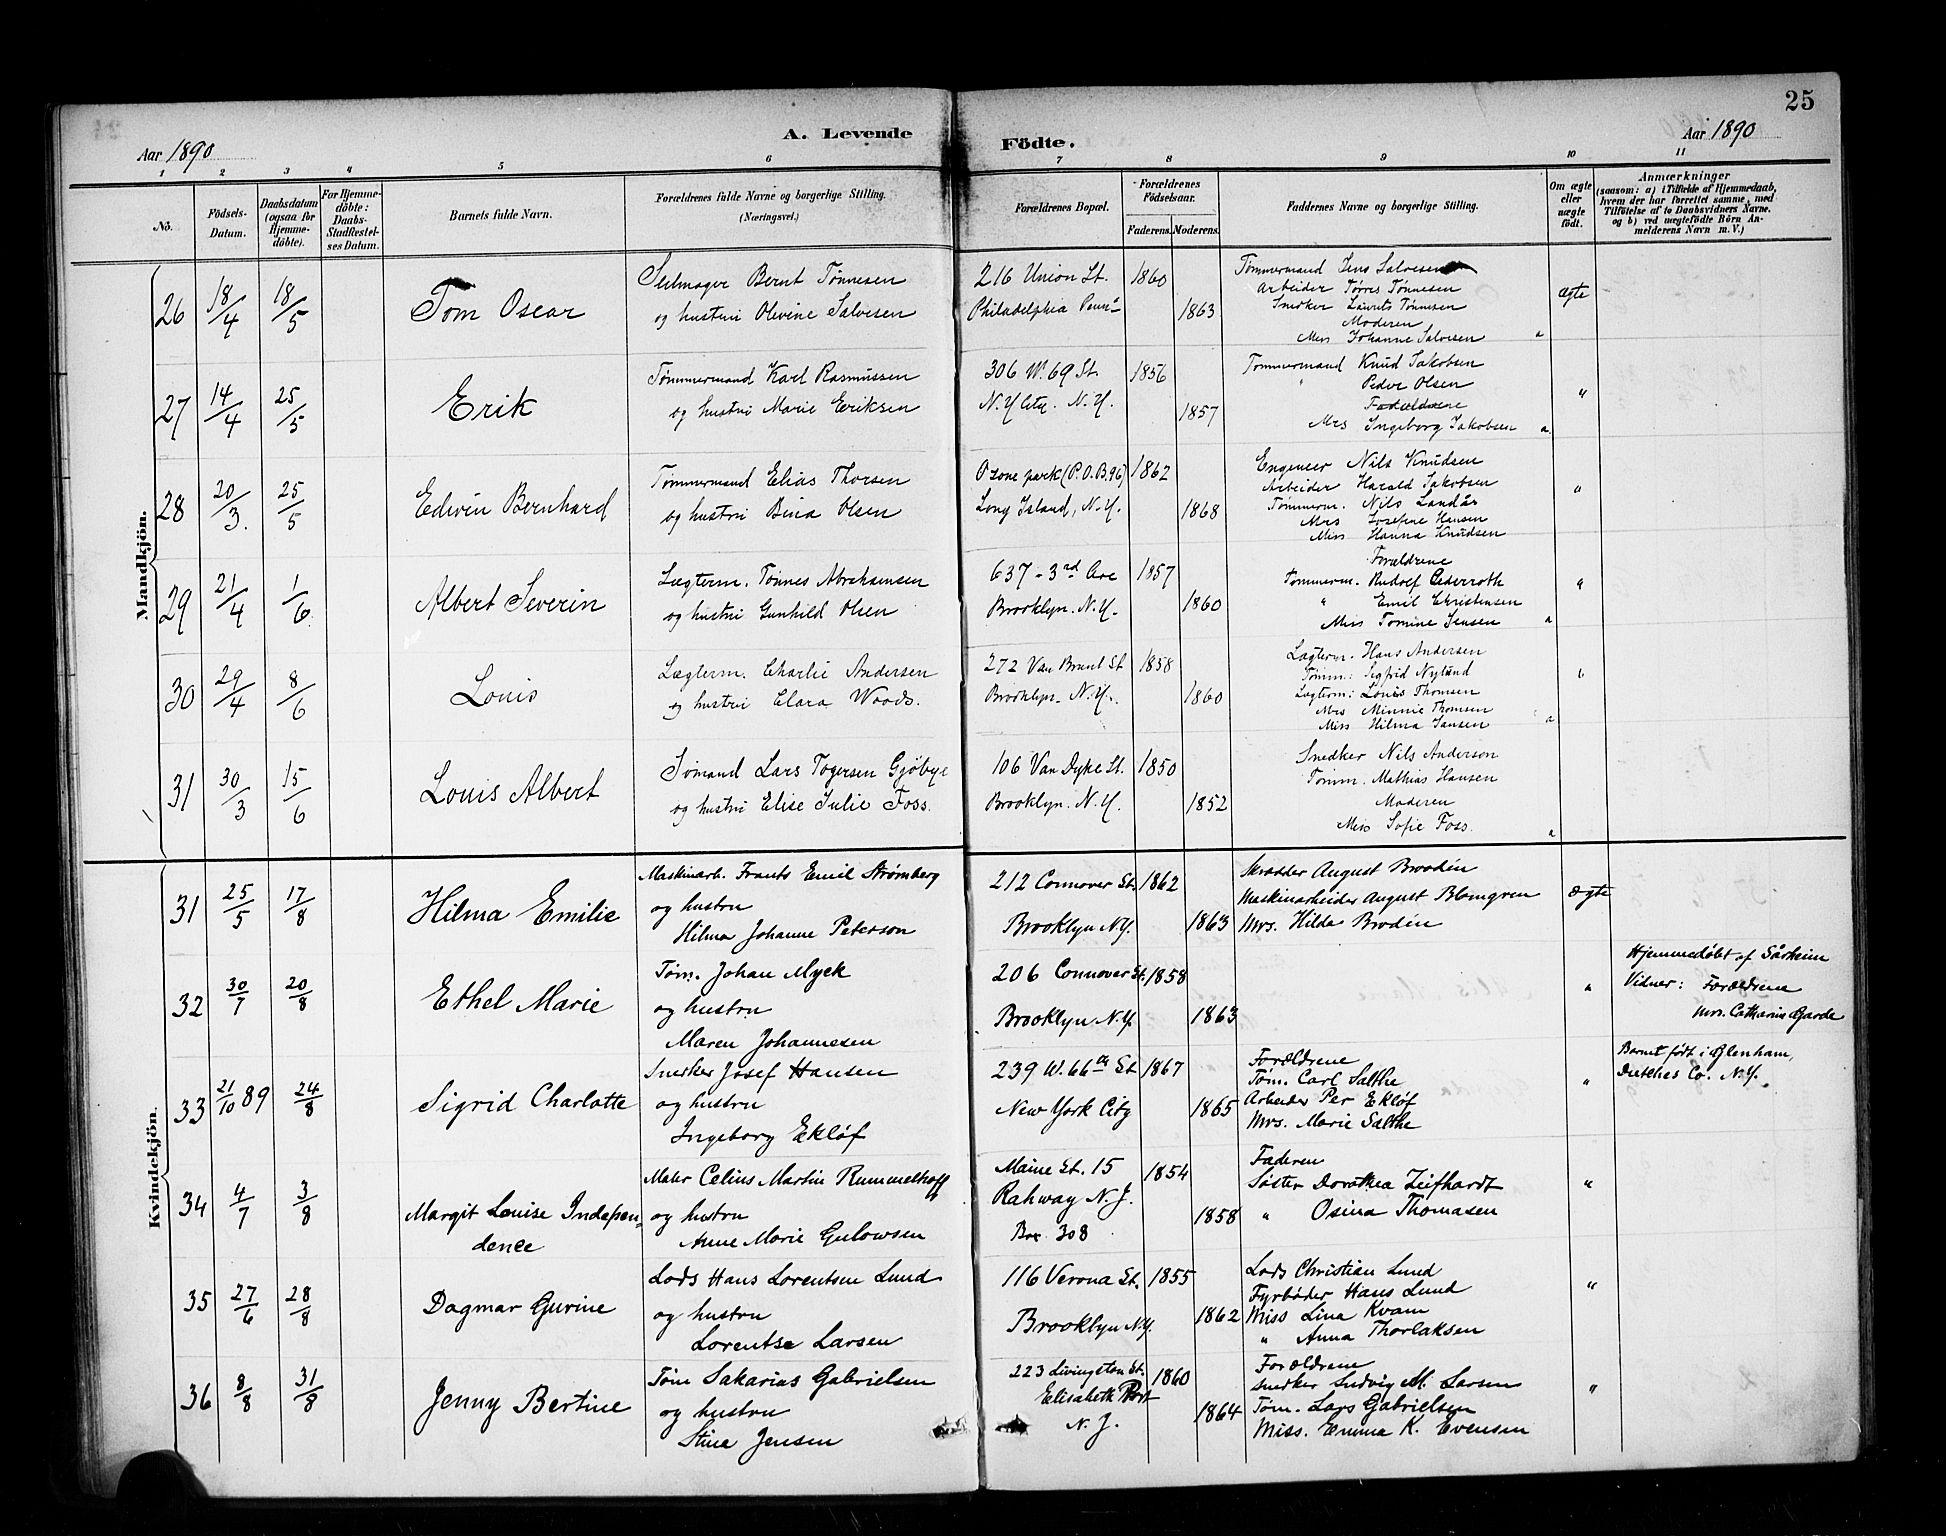 25
A. Levende Födte.
Aar 1890
Aar 1890
1 2 3 4 5 6 7 8 9 10 11
Nö.
Födsels-Datum.
Daabsdatum (ogsaa for Hjemme-döbte).
For Hjemme-döbte: Daabs-Stadfæstel-ses Datum.
Barnets fulde Navn.
Forældrenes fulde Navne og borgerlige Stilling. (Næringsvei.)
Forældrenes Bopæl.
Forældrenes Födselsaar.
Faderens. Moderens.
Faddernes Navne og borgerlige Stilling.
Om ægte eller uægte födt.
Anmærkninger
(saasom: a) i Tilfælde af Hjemmedaab, hvem der har forrettet samme, med Tilföielse af to Daabsvidners Navne, og b) ved uægtefödte Börn An-melderens Navn m. V.)
Mandkjön.
26 18/4 18/5 Tom Oscar
Seilmager Bernt Tønnesen
og hustru Olevine Salvesen
216 Union St.
Philadelphia Penn
1860 1863
Tømmermand Jens Salvesen
Arbeider Tørres Tønnesen
Snedker Laurits Tønnesen
Moderen
Miss Johanne Salvesen
ægte
27 14/4 25/5 Erik
Tømmermand Karl Rasmussen
og hustru Marie Eriksen
306 W. 69 St.
N.Y City. N.Y.
1856 1857
Tømmermand Knud Jakobsen
" Peder Olsen
Forældrene
Mrs Ingeborg Jakobsen
"
28 20/3. 25/5 Edwin Bernhard
Tømmermand Elias Thorsen
og hustru Bina Olsen
Ozone park (P.O.B.96)
Long Island, N.Y.
1862 1868
Engeneer Nils Knudsen
Arbeider Harald Jakobsen
Tømmerm. Nils Landås
Mrs Josefine Hansen
Miss Hanna Knudsen
"
29 21/4 1/6 Albert Severin
Lægterm. Tønnes Abrahamsen
og hustru Gunhild Olsen
637 - 3rd Ave
Brooklyn. N.Y.
1857 1860
Forældrene
Tømmerm. Rudolf Cederroth
" Emil Christensen
Miss Tomine Jensen
"
30 29/4 8/6 Louis
Lægterm. Charlie Andersen
og hustru Clara Woods.
272 Van Brunt St
Brooklyn. N.Y.
1858 1860
Lægterm. Hans Andersen
Tømm: Sigfrid Nylund
Lægterm: Louis Thomsen
Mrs Minnie Thomsen
Miss Hilma Jansen
"
31 30/3 15/6 Louis Albert
Sømand Lars Togersen Gjøbye
og hustru Elise Julie Foss.
106 Van Dyke St.
Brooklyn. N.Y.
1850 1852
Snedker Nils Anderson
Tømm. Mathias Hansen
Moderen
Miss Sofie Foss.
Kvindekjön.
31 25/5 17/8 Hilma Emilie
Maskinarb. Frants Emil Strømberg
og hustru
Hilma Johanne Peterson
212 Connover St.
Brooklyn N.Y.
1862 1863
Skrædder August Brodén
Maskinarbeider August Blomgren
Mrs. Hilda Brodén
Ægte
32 30/7 20/8 Ethel Marie
Tøm. Johan Myck
og hustru
Maren Johannesen
206 Connover St.
Brooklyn N.Y.
1858 1863
"
Hjemmedøbt af Sårheim
Vidner: Forældrene
Mrs. Catharine Garde
33 21/10 89 24/8 Sigrid Charlotte
Snedker Josef Hansen
og hustru
Ingeborg Ekløf
239 W. 66th St.
New York City
1867 1865
Forældrene
Tøm. Carl Salthe
Arbeider Per Ekløf
Mrs. Marie Salthe
"
Barnet født i Glenham,
Dutches Co. N.Y.
34 4/7 3/8 Margit Louise Indepen-
dence
Maler Celius Martin Rummelhoff
og hustru
Anne Marie Gulowsen
Maine St. 15
Rahway N.J.
Box 308
1854 1858
Faderen
Søster Dorothea Zeifhardt
" Osina Thomasen
"
35 27/6 28/8 Dagmar Gurine
Lods Hans Lorentsen Lund
og hustru
Lorentse Larsen
116 Verona St.
Brooklyn N.Y.
1855 1862
Lods Christian Lund
Fyrbøder Hans Lund
Miss Lina Kvam
" Anna Thorlaksen
"
36 8/8 31/8 Jenny Bertine
Tøm Sakarias Gabrielsen
og hustru
Stine Jensen
223 Livingston St.
Elisabeth Port
N.J.
1860 1864
Forældrene
Snedker Ludvig M. Larsen
Tøm. Lars Gabrielsen
Miss. Emma K. Evensen
"